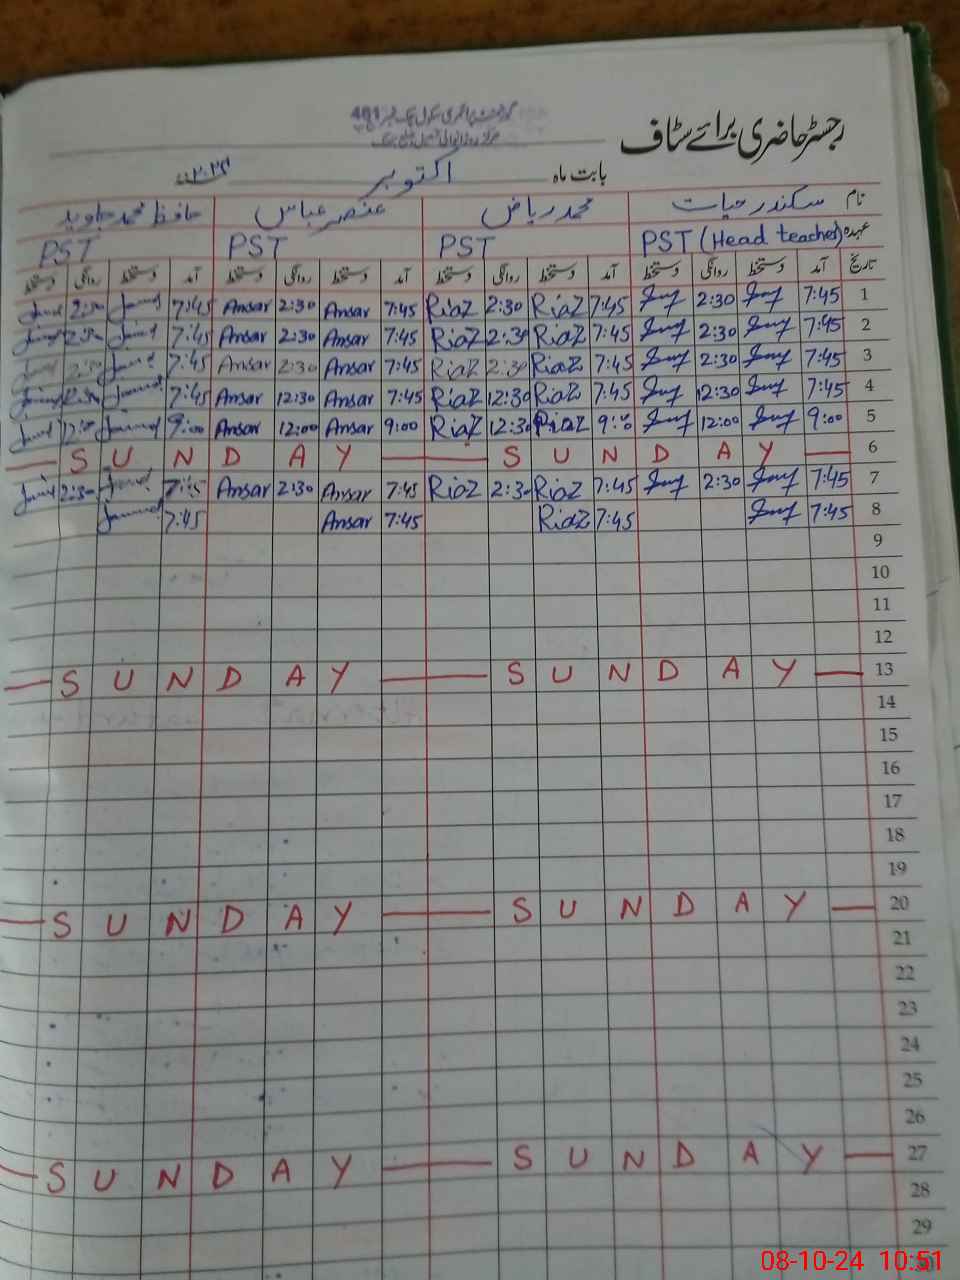 رجسٹر حاضری برائے سٹاف
گورنمنٹ پرائمری سکول چک نمبر
بابت ماہ اکتوبر ۲۰۲۴ء
نام سکندر حیات محمد ریاض عنصر عباس حافظ محمد جاوید
عہدہ PST (Head teacher) PST PST PST
تاریخ آمد دستخط روانگی دستخط آمد دستخط روانگی دستخط آمد دستخط روانگی دستخط آمد دستخط روانگی دستخط
1 7:45 2:30 7:45 RiaZ 2:30 RiaZ 7:45 Ansar 2:30 Ansar 7:45 2:30
2 7:45 2:30 7:45 RiaZ 2:30 RiaZ 7:45 Ansar 2:30 Ansar 7:45 2:30
3 7:45 2:30 7:45 RiaZ 2:30 RiaZ 7:45 Ansar 2:30 Ansar 7:45 2:30
4 7:45 12:30 7:45 RiaZ 12:30 RiaZ 7:45 Ansar 12:30 Ansar 7:45
5 9:00 12:00 RiaZ 12:30 RiaZ 9:00 Ansar 12:00 Ansar 9:00
6 S U N D A Y S U N D A Y
7 7:45 2:30 7:45 RiaZ 2:30 RiaZ 7:45 Ansar 2:30 Ansar 7:45 2:30
8 7:45 7:45 RiaZ 7:45 Ansar 7:45
9
10
11
12
13 S U N D A Y S U N D A Y
14
15
16
17
18
19
20 S U N D A Y S U N D A Y
21
22
23
24
25
26
27 S U N D A Y S U N D A Y
28
29
08-10-24 10:51